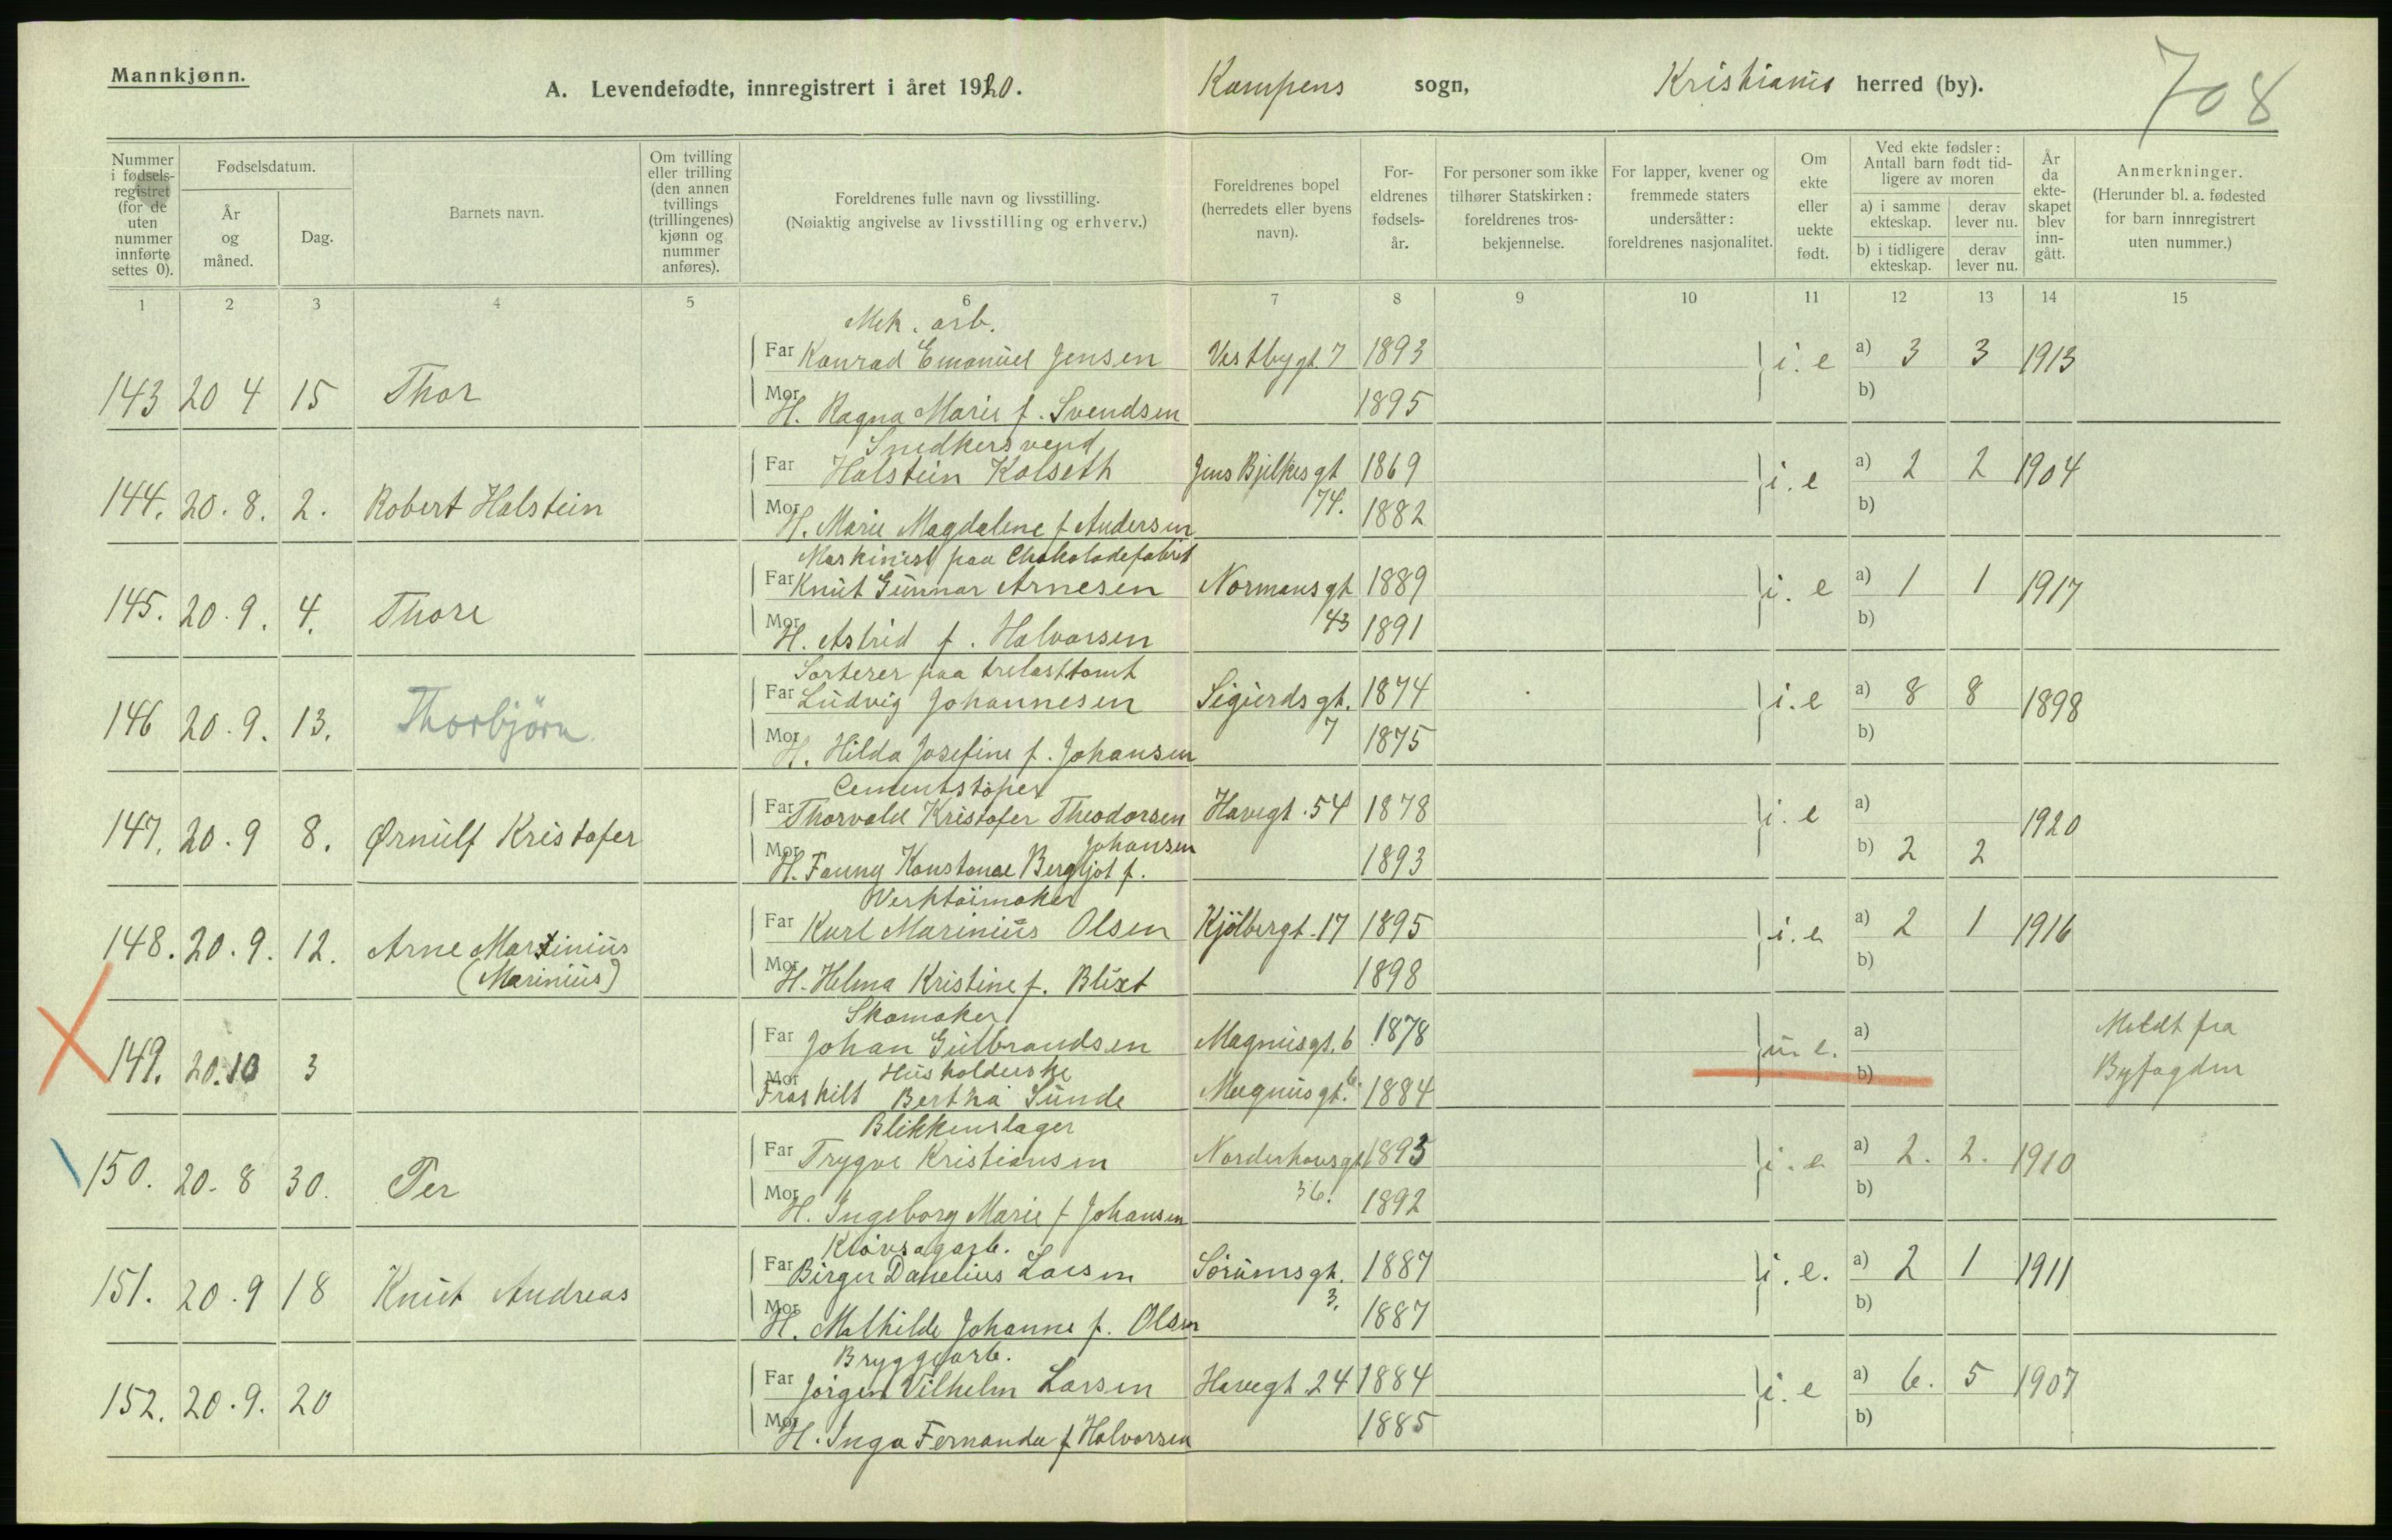 Mannkjønn.
A. Levendefødte, innregistrert i året 1920. Kampens sogn, Kristiania herred (by).
708
Nummer i fødsels-registret (for de uten nummer innførte settes 0).
Fødselsdatum.
År og måned.
Dag.
Barnets navn.
Om tvilling eller trilling (den annen tvillings (trillingenes) kjønn og nummer anføres).
Foreldrenes fulle navn og livsstilling.
(Nøiaktig angivelse av livsstilling og erhverv.)
Foreldrenes bopel (herredets eller byens navn).
For-eldrenes fødsels-år.
For personer som ikke tilhører Statskirken: foreldrenes tros-bekjennelse.
For lapper, kvener og fremmede staters undersåtter: foreldrenes nasjonalitet.
Om ekte eller uekte født.
Ved ekte fødsler: Antall barn født tid-ligere av moren
a) i samme ekteskap. derav lever nu.
b) i tidligere ekteskap. derav lever nu.
År da ekte-skapet blev inn-gått.
Anmerkninger.
(Herunder bl. a. fødested for barn innregistrert uten nummer.)
1 2 3 4 5 6 7 8 9 10 11 12 13 14 15
Mek. arb.
143 20 4 15 Thor Far Konrad Emanuel Jensen Vestbygt. 7 1893 i. e a) 3 3 1913
Mor H. Ragna Marie f. Svendsen 1895 b)
Snedkersvend
144. 20. 8. 2. Robert Halstein Far Halstein Kolseth Jens Bjelkes gt 1869 i. e a) 2 2 1904
Mor H. Marie Magdalene f Andersen 74. 1882 b)
Maskinist paa Chokoladefabrik
145. 20. 9. 4. Thore Far Knut Gunnar Arnesen Normans gt 1889 i. e a) 1 1 1917
Mor H. Astrid f. Halvorsen 43 1891 b)
Sorterer paa trelasttomt
146 20. 9. 13. Thorbjörn Far Ludvig Johannesen Sigurds gt. 1874 i. e a) 8 8 1898
Mor H. Hilda Josefine f. Johansen 7 1875 b)
Cementstøper
147. 20. 9 8. Ørnulf Kristofer Far Thorvald Kristofer Theodorsen Havegt. 54 1878 i. e a) 1920
Johansen
Mor H. Fanny Konstanse Bergljot f. 1893 b) 2 2
Werktöimaker
148. 20. 9. 12. Arne Martinius Far Karl Marinius Olsen Kjölbergt. 17 1895 i. e a) 2 1 1916
(Marinius) Mor H. Helma Kristine f. Blixt 1898 b)
Skomaker
149. 20. 10 3 Far Johan Gulbrandsen Magnusgt. 6 1878 u. e. a) Meldt fra
Husholderske
Mor Fraskilt Bertha Sunde Magnusgt. 6. 1884 b) Byfogden
Blikkenslager
150. 20. 8 30. Per Far Trygve Kristiansen Norderhovsgt 1893 i. e a) 2. 2. 1910
Mor H. Ingeborg Marie f Johansen 36. 1892 b)
Kløvsagarb.
151. 20. 9 18 Knut Andreas Far Birger Danelius Larsen Sörumsgt. 1887 i. e. a) 2 1 1911
Mor H. Mathilde Johanne f. Olsen 3. 1887 b)
Bryggearb.
152. 20. 9. 20 Far Jörgen Vilhelm Larsen Havegt. 24 1884 i. e a) 6. 5 1907
Mor H. Inga Fernanda f Halvorsen 1885 b)